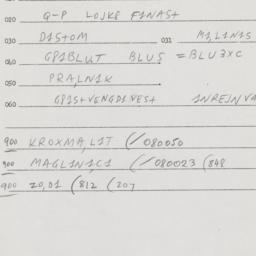 020 Q-P LOJKE FINASt
030 DIStOM 031 MI,LINIS
040 GPIBLUT BLUS = BLU3XC
050 PRA,LNIK
060 GPIStVENGDIVESt INREJNVA
900 KROXMA,LIT (/080050
900 MAGLINICI (/080023 (848
900 ZO,DI (812 (207